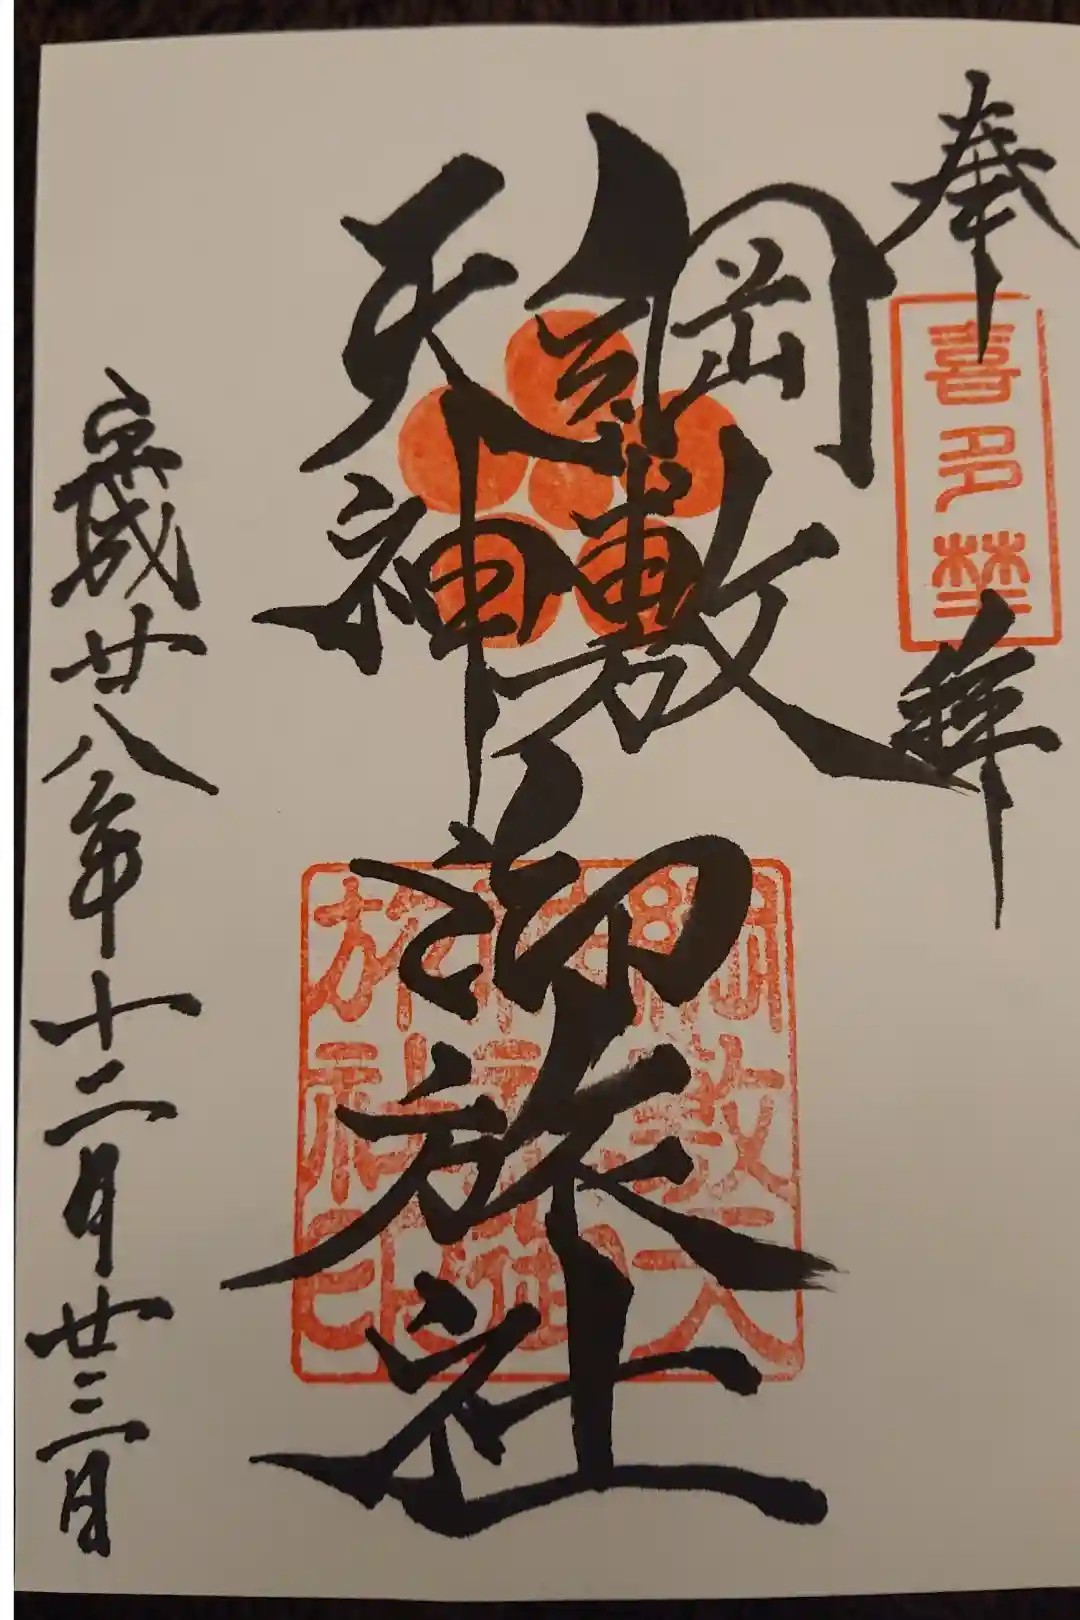 奉拝
喜多埜
綱敷
天神
御旅社
綱敷天
神社御
旅社印
平成廿八年十二月廿三日